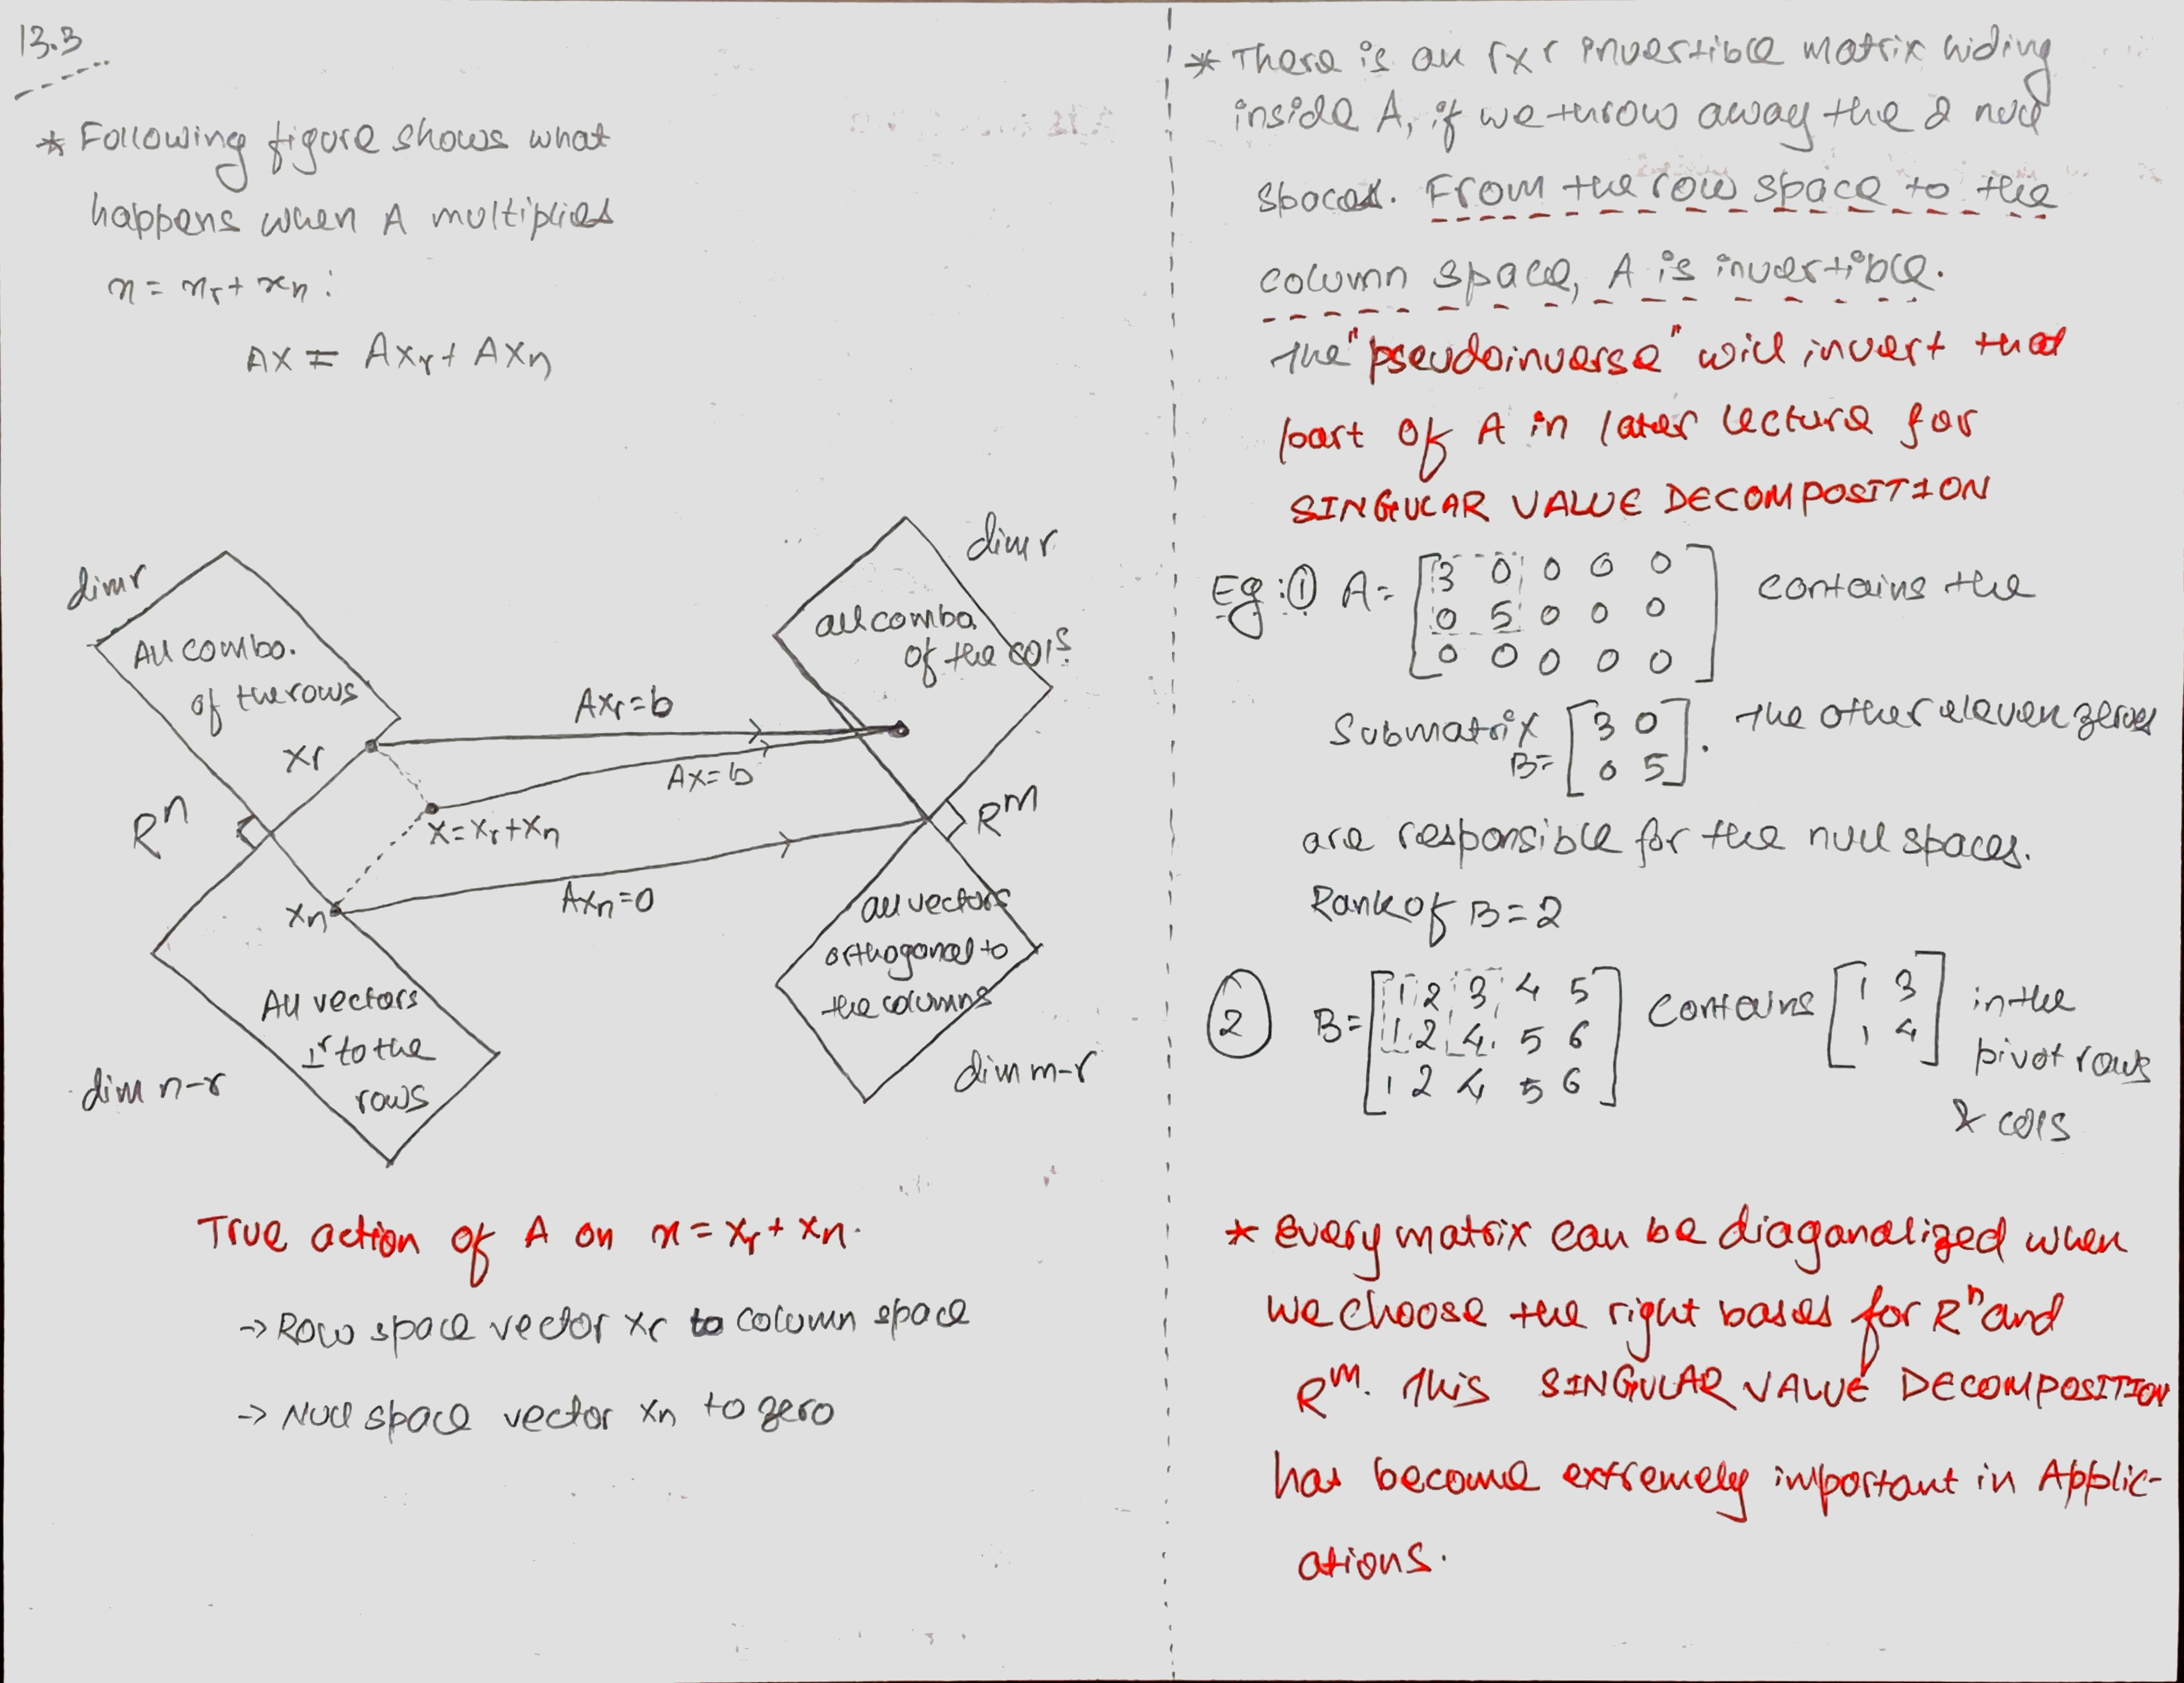 13.3
* Following figure shows what
happens when A multiplies
x = xr + xn :
AX = Axr + AXn
dim r
All combo.
of the rows
xr
R^n
xn
All vectors
⊥r to the
rows
dim n-r
Axr = b
Ax = b
x = xr + xn
Axn = 0
dim r
all combo
of the cols.
R^m
all vectors
orthogonal to
the columns
dim m-r
True action of A on x = xr + xn.
-> Row space vector xr to column space
-> Null space vector xn to zero
* There is an rxr invertible matrix hiding
inside A, if we throw away the 2 null
spaces. From the row space to the
column space, A is invertible.
The "pseudoinverse" will invert that
part of A in later lecture for
SINGULAR VALUE DECOMPOSITION
Eg: ① A = [3 0 0 0 0 contains the
0 5 0 0 0
0 0 0 0 0]
Submatrix B = [3 0
0 5]. The other eleven zeroes
are responsible for the null spaces.
Rank of B = 2
② B = [1 2 3 4 5 contains [1 3 in the
1 2 4 5 6 1 4] pivot rows
1 2 4 5 6] & cols
* Every matrix can be diaganalized when
we choose the right bases for R^n and
R^m. This SINGULAR VALUE DECOMPOSITION
has become extremely important in Applic-
ations.